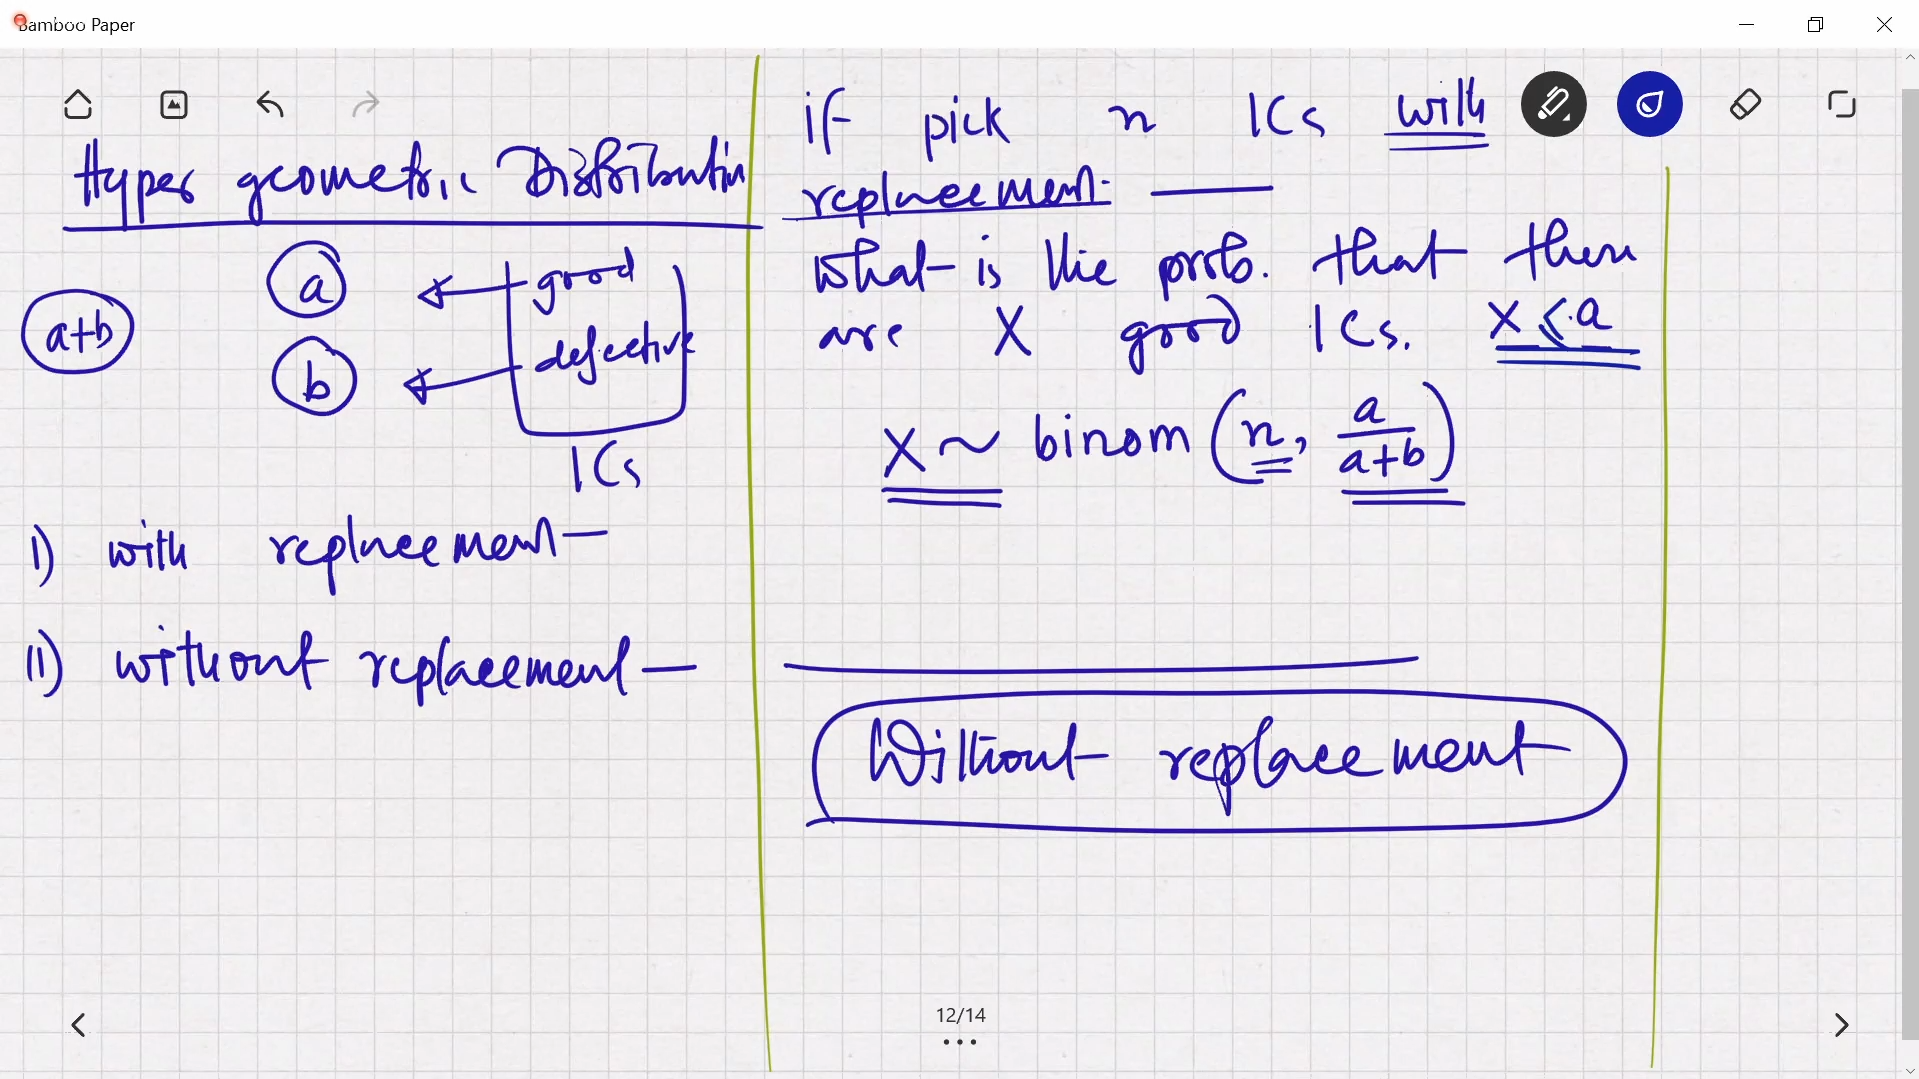 Bamboo Paper
Hyper geometric Distribution
a+b
a
good
b
defective
ICs
I) with replacement
II) without replacement
if pick n ICs with
replacement
what is the prob. that there
are X good ICs. X ≤ a
X ~ binom (n, a/(a+b))
Without replacement
12/14